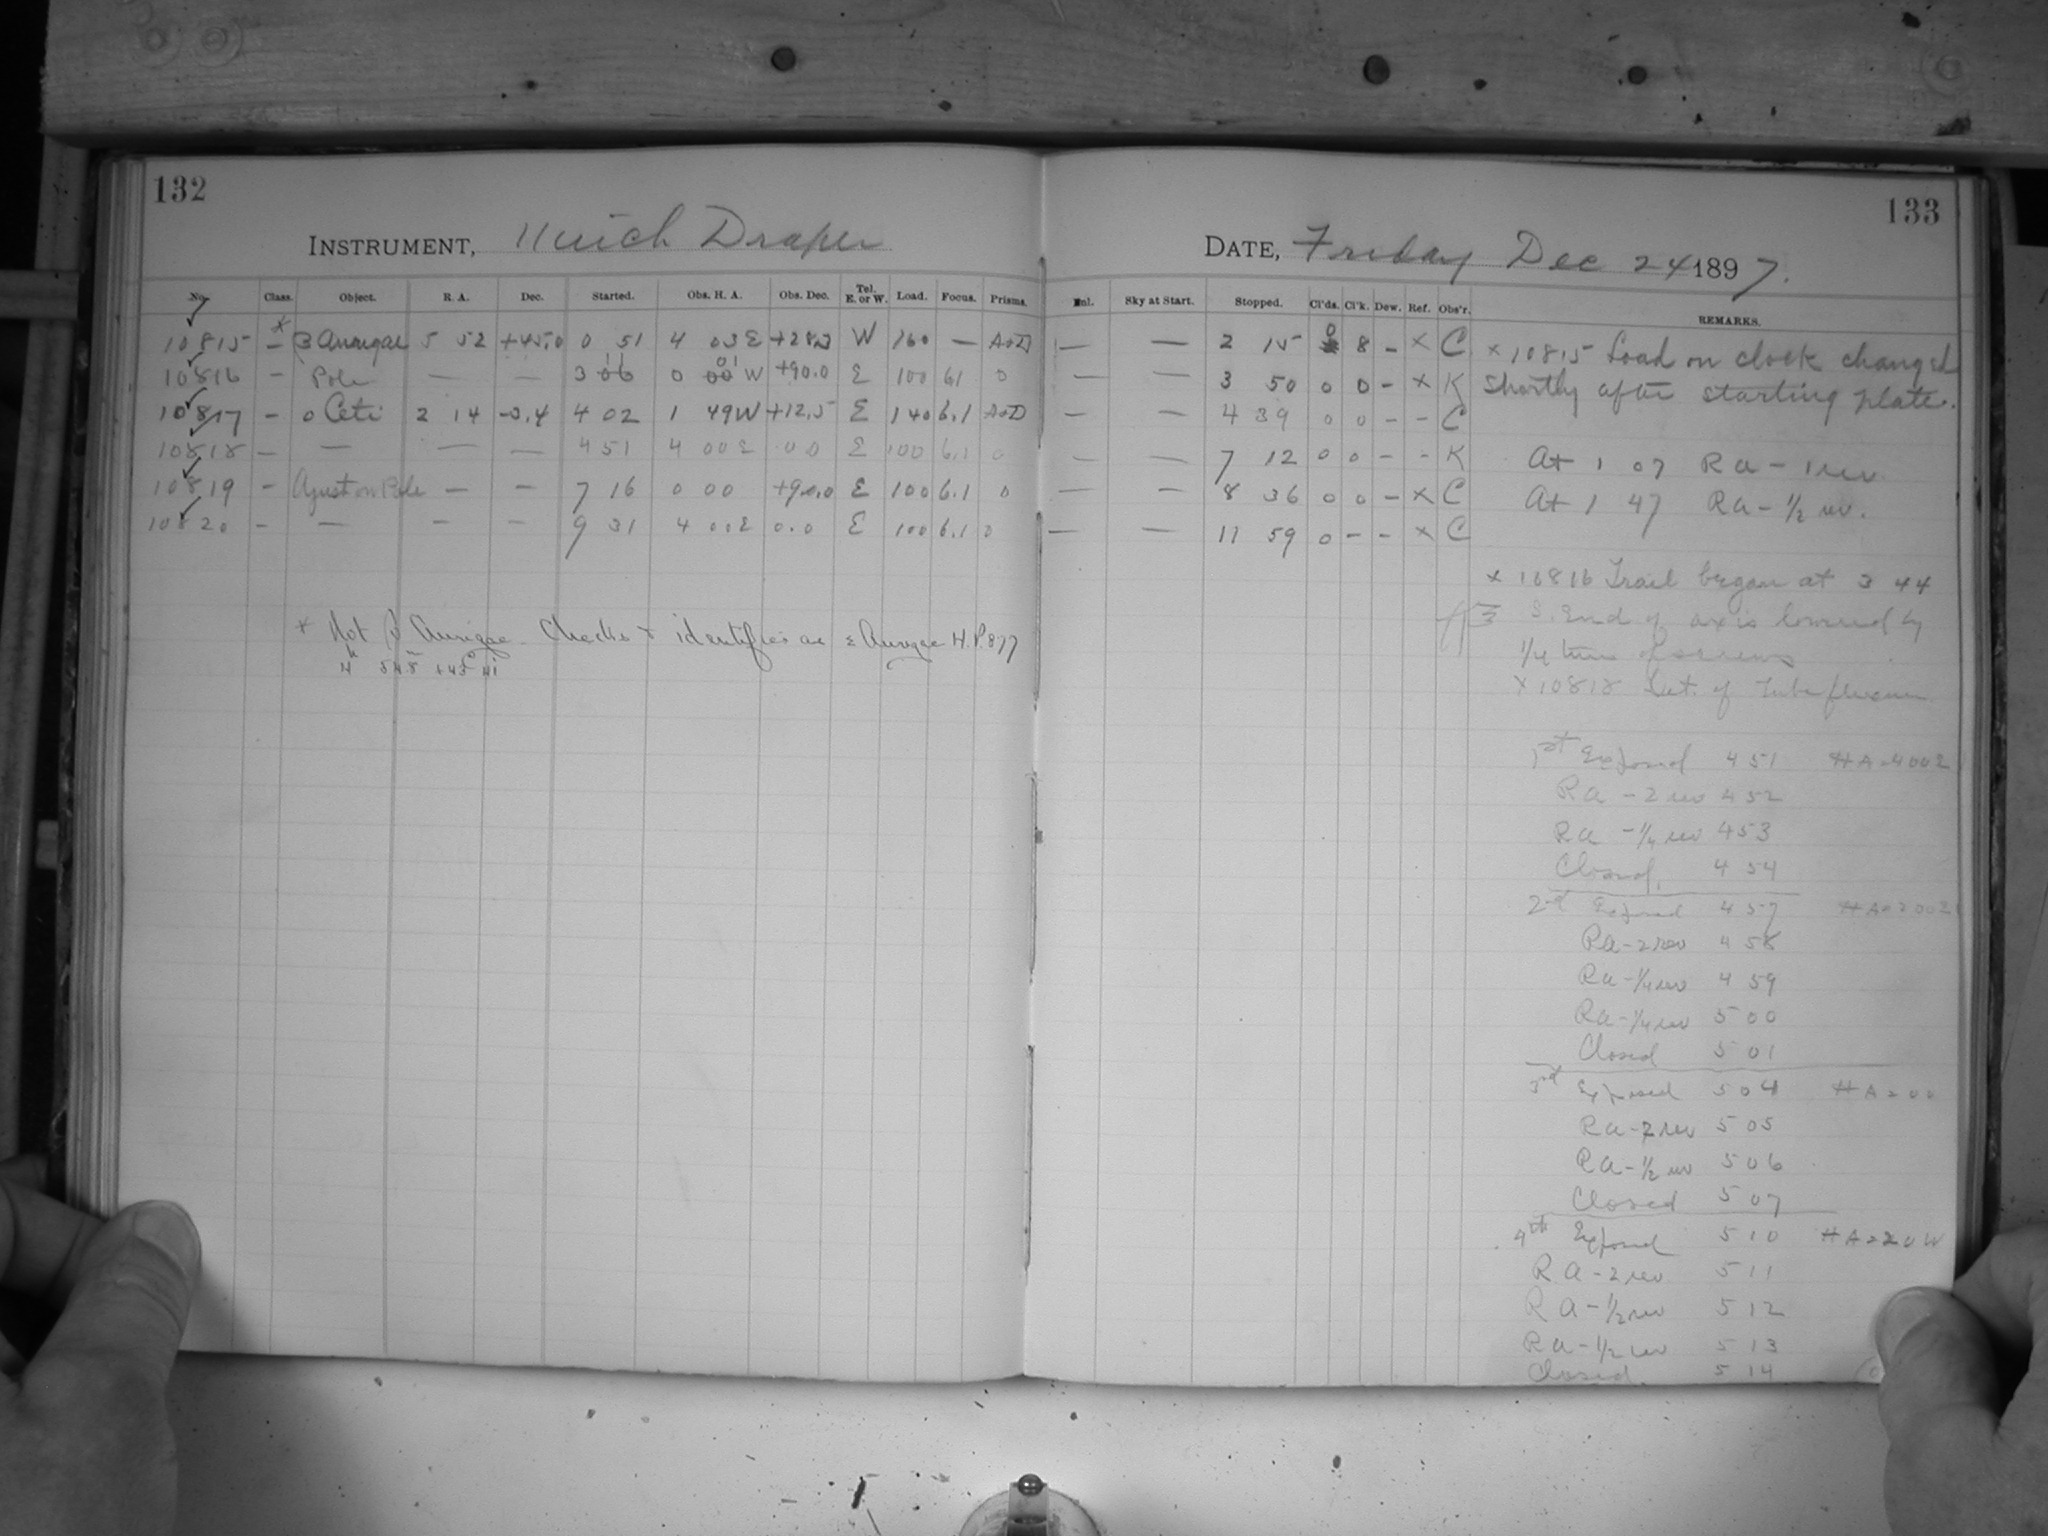 132
INSTRUMENT, 11 inch Draper
No. Class. Object. R. A. Dec. Started. Obs. H. A. Obs. Dec. Tel. E. or W. Load. Focus. Prisms.
10815 x – β Aurigae 5 52 +45.0 0 51 4 03 E W 160 —
10816 – Pole — — 3 06 11 0 00 W 01 +90.0 E 100 61 0
10817 – o Ceti 2 14 -3.4 4 02 1 49 W +12.5 E 140 6.1
10818 – — — — 4 51 4 00 E 00 E 100 6.1 0
10819 – Ajust on Pole – – 7 16 0 00 +90.0 E 100 6.1 0
10820 – — – – 9 31 4 00 E 0.0 E 100 6.1 0
x Not β Aurigae. Checks & identifies as ε Aurigae H.P. 877
133
DATE, Friday Dec 24 1897.
Enl. Sky at Start. Stopped. Cl'ds. Cl'k. Dew. Ref. Obs'r. REMARKS.
— — 2 15 0 8 – x C
— — 3 50 0 0 – x K
— — 4 39 0 0 – – C
— — 7 12 0 0 – – K
— — 8 36 0 0 – x C
— — 11 59 0 – – x C
x 10815 Load on clock changed
shortly after starting plate.
At 1 07 Ra – 1 rev.
At 1 47 Ra – 1/2 rev.
x 10816 Trail began at 3 44
S. End of axis lowered by
1/4 turn of screws
x 10818 Det. of Tube flexure
1st Exposed 4 51 HA = 4 00 E
Ra – 2 rev 4 52
Ra – 1/4 rev 4 53
Closed, 4 54
2nd Exposed 4 57 HA = 2 00 E
Ra – 2 rev 4 58
Ra – 1/4 rev 4 59
Ra – 1/4 rev 5 00
Closed 5 01
3rd Exposed 5 04 HA = 00
Ra – 2 rev 5 05
Ra – 1/2 rev 5 06
Closed 5 07
4th Exposed 5 10 HA = 2 0 W
Ra – 2 rev 5 11
Ra – 1/2 rev 5 12
Ra – 1/2 rev 5 13
Closed. 5 14